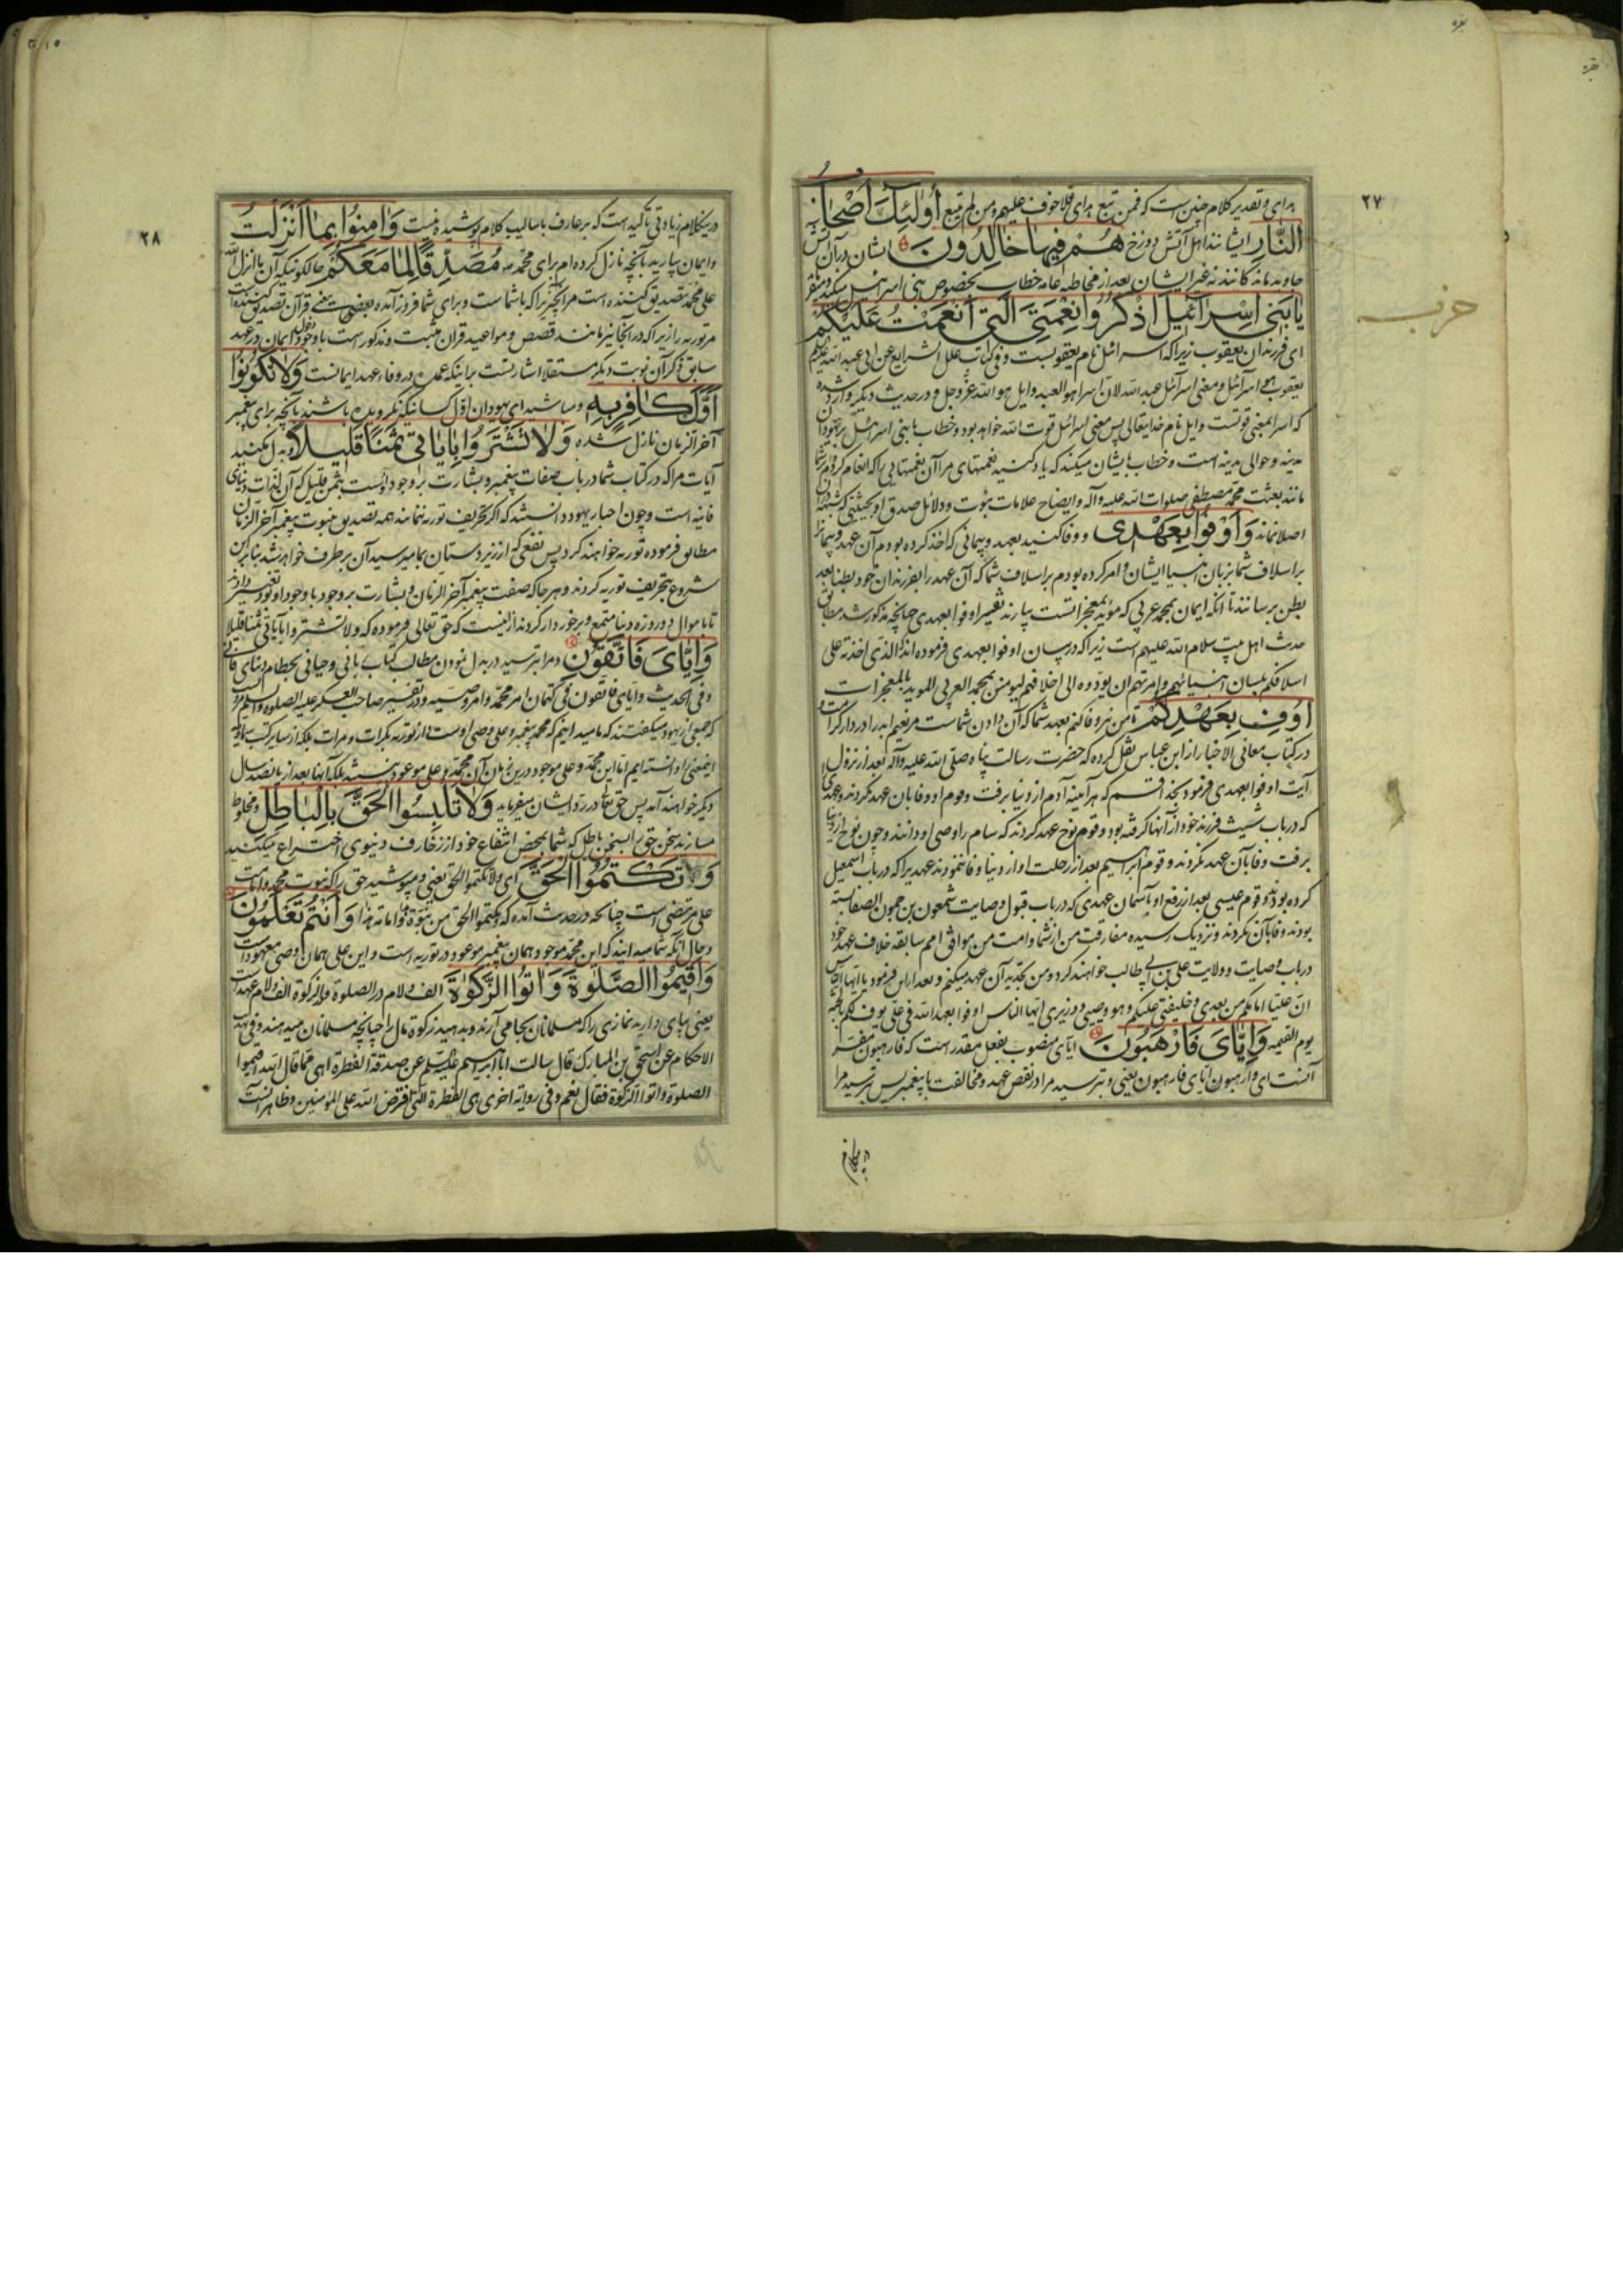 ۲۷
هدای و تقدیر کلام چنین است که فمن تبع هدای فلا خوف علیهم و من لم تبع أُولٰئِكَ أَصْحَابُ
النَّارِ ایشانند اهل آتش دوزخ هُمْ فِيهَا خَالِدُونَ ایشان در آن آتش
جاوید مانندکانند نه غیر ایشان بعد از مخاطبه عامه خطاب بخصوص بنی اسرائیل میکند
يَا بَنِي إِسْرَائِيلَ اذْكُرُوا نِعْمَتِيَ الَّتِي أَنْعَمْتُ عَلَيْكُمْ
ای فرزندان یعقوب زیرا که اسرائیل نام یعقوبست و فی کتاب علل الشرایع عن ابی عبد الله
یعقوب هو اسرائیل و معنی اسرائیل عبد الله لان اسرا هو العبد و ایل هو الله عز و جل و در حدیث دیگر وارد شده
که اسرا بمعنی قوتست و ایل نام خدایتعالی پس معنی اسرائیل قوت الله خواهد بود و خطاب با بنی اسرائیل
مدینه و حوالی مدینه است و خطاب بایشان میکند که یاد کنید نعمتهای مرا آن نعمتهایی را که انعام کردم
مانند بعثت محمد مصطفی صلوات الله علیه و آله و ایضاح علامات نبوت و دلائل صدق او بحیثیتی که
اصلا نماند وَأَوْفُوا بِعَهْدِي و وفا کنید بعهد و پیمانی که اخذ کرده بودم آن عهد و پیمانرا
بر اسلاف شما بزبان انبیا ایشان و امر کرده بودم بر اسلاف شما که آن عهد را بفرزندان خود بطنا بعد
بطن برسانند تا انکه ایمان بمحمد عربی که مؤید بمعجزاتست بیارند تفسیر اوفوا بعهدی چنانچه مذکور شد مطابق
حدیث اهل بیت سلام الله علیهم است زیرا که در بیان اوفوا بعهدی فرموده اند الذی اخذته علی
اسلافکم بلسان انبیائهم و امرتهم ان یؤدوه الی اخلافهم لیؤمنن بمحمد العربی المؤید بالمعجزات
أُوفِ بِعَهْدِكُمْ تا من نیز وفا کنم بعهد شما که آن دادن شماست مر نعیم ابد را در دار کرامت
در کتاب معانی الاخبار از ابن عباس نقل کرده که حضرت رسالت پناه صلی الله علیه و آله بعد از نزول
آیت اوفوا بعهدی فرمود بخدا قسم که هر آینه آدم از دنیا برفت و قوم او وفا بان عهد نکردند
که در باب شیث فرزند خود از آنها گرفته بود و قوم نوح عهد کردند که سام را وصی او دانند و چون نوح از دنیا
برفت وفا بآن عهد نکردند و قوم ابراهیم بعد از رحلت او از دنیا وفا ننمودند عهدیرا که در باب اسمعیل
کرده بودند و قوم عیسی بعد از رفع او بآسمان عهدی که در باب قبول وصایت شمعون بن حمون الصفا بسته
بودند وفا بآن نکردند و نزدیک رسیده مفارقت من از شما و امت من موافق امم سابقه خلاف عهد خود
در باب وصایت و ولایت علی بن ابی طالب خواهند کرد و من تجدید آن عهد میکنم و بعد از این فرمود یا ایها الناس
ان علیا امامکم من بعدی و خلیفتی علیکم و هو وصیی و وزیری ایها الناس اوفوا بعهد الله فی علی یوف لکم
یوم القیمه وَإِيَّايَ فَارْهَبُونِ ایای منصوب بفعل مقدر است که فارهبون مفسر
آنست ای وارهبون ایای فارهبون یعنی و بترسید مرا در نقض عهد و مخالفت با پیغمبر پس بترسید مرا
حزب
۲۸
درینکلام زیادتی تأکید است که بر عارف باسالیب کلام پوشیده نیست وَآمِنُوا بِمَا أَنْزَلْتُ
و ایمان بیارید بآنچه نازل کرده ام برای محمد مُصَدِّقًا لِمَا مَعَكُمْ حالکونیکه آن ما انزل الله
علی محمد تصدیق کننده است مر انچیز را که با شماست و برای شما فرود آمده یعنی قرآن تصدیق کننده است
مر توریه را زیرا که در آنجا نیز مانند قصص و مواعید قران مثبت و مذکور است با وجود دخول ایمان در عهد
سابق ذکر آن نوبت دیگر مستقلا اشارتست براینکه عمده در وفاء عهد ایمانست وَلَا تَكُونُوا
أَوَّلَ كَافِرٍ بِهِ و مباشید ای یهودان اول کسانیکه نکرویده باشند بآنچه برای پیغمبر
آخر الزمان نازل شده وَلَا تَشْتَرُوا بِآيَاتِي ثَمَنًا قَلِيلًا و بدل مکنید
آیات مرا که در کتاب شما در باب صفات پیغمبر و بشارت بر وجود اوست بثمن قلیل که آن لذات دنیای
فانیه است و چون احبار یهود دانستند که اگر تحریف توریه ننمایند همه تصدیق بنبوت پیغمبر آخر الزمان
مطابق فرموده توریه خواهند کرد پس نفعی که از زیردستان بما میرسید آن بر طرف خواهد شد بنابراین
شروع بتحریف توریه کردند و هر جا که صفت پیغمبر آخر الزمان و بشارت بر وجود باوجود او بود تغییر دادند
تا باموال دو روزه دنیا متمتع و برخوردار کردند ازینست که حق تعالی فرموده که ولا تشتروا بایاتی ثمنا قلیلا
وَإِيَّايَ فَاتَّقُونِ و مرا بترسید در بدل نمودن مطالب کتاب باقی و حیاتی بحطام دنیای فانی
و فی الحدیث و ایای فاتقون فی کتمان امر محمد و امر وصیه و در تفسیر صاحب العسکر علیه الصلوة و السلام
که جمعی از یهود میکفتند که ما میدانیم که محمد پیغمبر و علی وصی اوست از توریه بکرات و مرات بلکه از سایر کتب سماویه
اینمعنی را دانسته ایم اما این محمد و علی موجود درین زمان آن محمد و علی موعود نیستند بلکه آنها بعد از پانصد سال
دیگر خواهند آمد پس حق تعالی در رد ایشان میفرماید وَلَا تَلْبِسُوا الْحَقَّ بِالْبَاطِلِ و مخلوط
مسازید سخن حق را بسخن باطل که شما بمحض انتفاع خود از زخارف دنیوی اختراع میکنید
وَتَكْتُمُوا الْحَقَّ ای و لا تکتموا الحق یعنی و مپوشید حق را که نبوت محمد و امامت
علی مرتضی است چنانچه در حدیث آمده که تکتموا الحق من نبوة هذا و امامة هذا وَأَنْتُمْ تَعْلَمُونَ
و حال آنکه شما میدانید که این محمد موجود همان پیغمبر موعود در توریه است و این علی همان وصی معهود است
وَأَقِيمُوا الصَّلٰوةَ وَآتُوا الزَّكٰوةَ الف و لام در الصلوة و الزکوة الف و لام عهد است
یعنی بپای دارید نمازی را که مسلمانان بجا می آرند و بدهید زکوة مال را چنانچه مسلمانان میدهند و فی تهذیب
الاحکام عن اسحق بن المبارک قال سالت ابا ابراهیم علیه السلام عن صدقة الفطرة اهی مما قال الله اقیموا
الصلوة و اتوا الزکوة فقال نعم و فی روایة اخری هی الفطرة التی افترض الله علی المؤمنین و ظاهر آنست